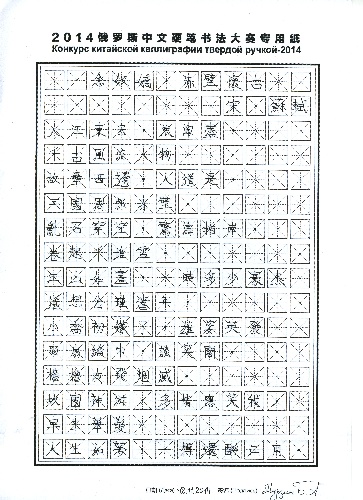 2014俄罗斯中文硬笔书法大赛专用纸
Конкурс китайской каллиграфии твердой ручкой-2014
念奴嬌·赤壁懷古
宋·蘇軾
大江東去,浪淘盡
千古風流人物
故壘西邊,人道是
三國周郎赤壁
亂石穿空,驚濤拍岸
卷起千堆雪
江山如畫,一時多少豪杰
遙想公瑾當年
小喬初嫁了,雄姿英發
羽扇綸巾,談笑間
檣櫓灰飛煙滅
故國神游,多情應笑我
早生華發
人生如夢,一樽還酹江月